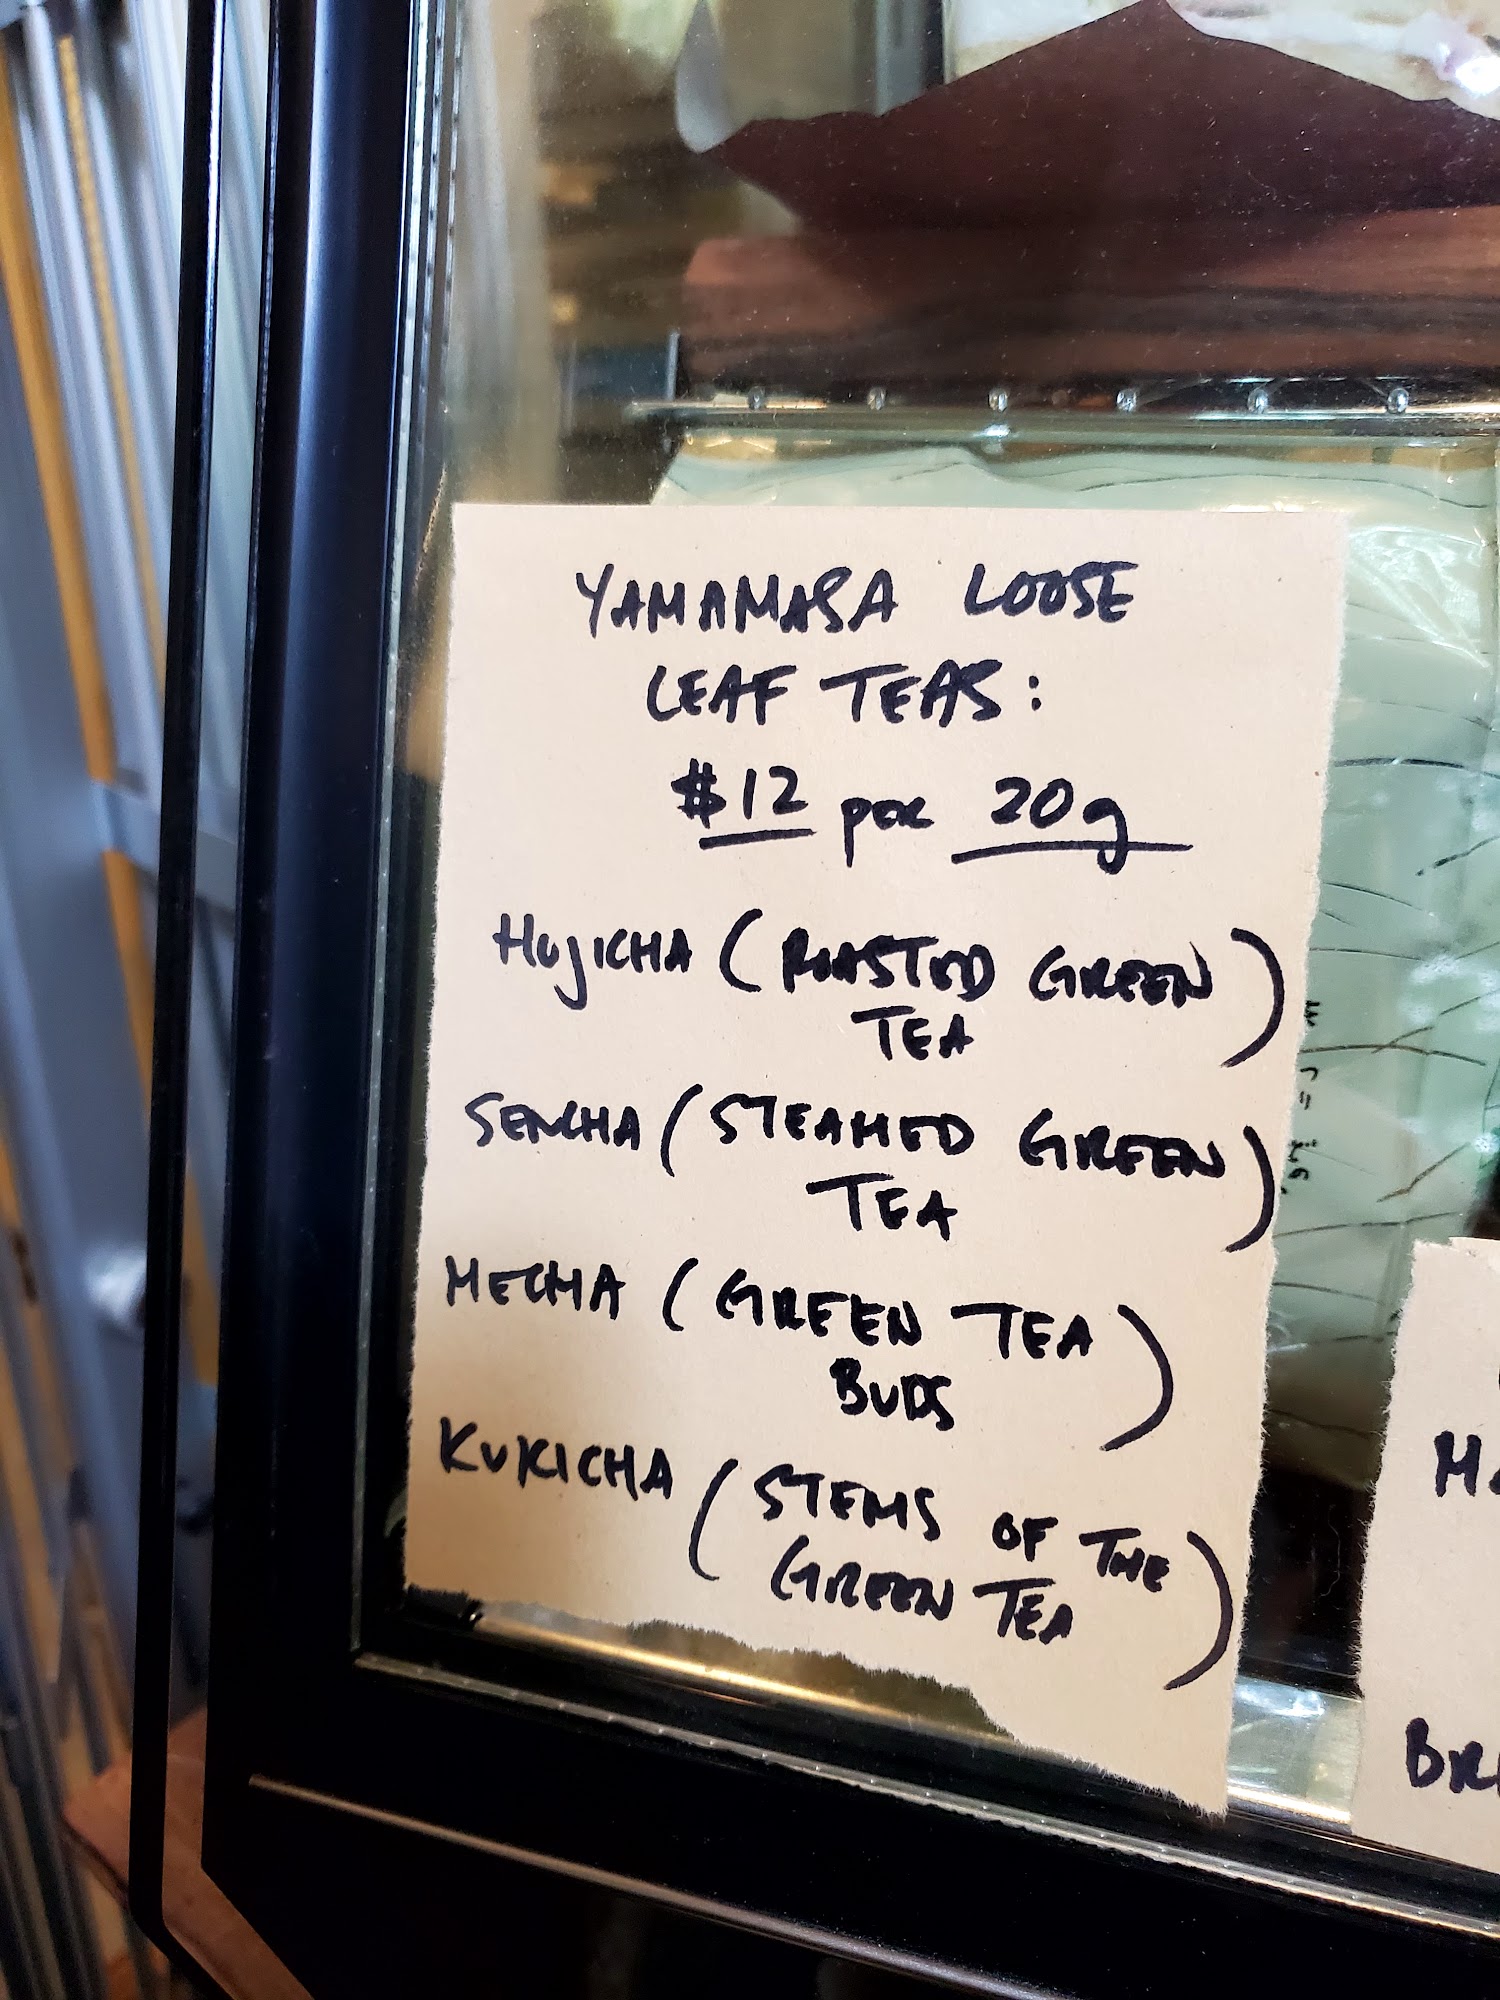 YAMAMASA LOOSE
LEAF TEAS:
$12 per 20g
HUJICHA (ROASTED GREEN
TEA)
SENCHA (STEAMED GREEN
TEA)
MECHA (GREEN TEA
BUDS)
KUKICHA (STEMS OF THE
GREEN TEA)